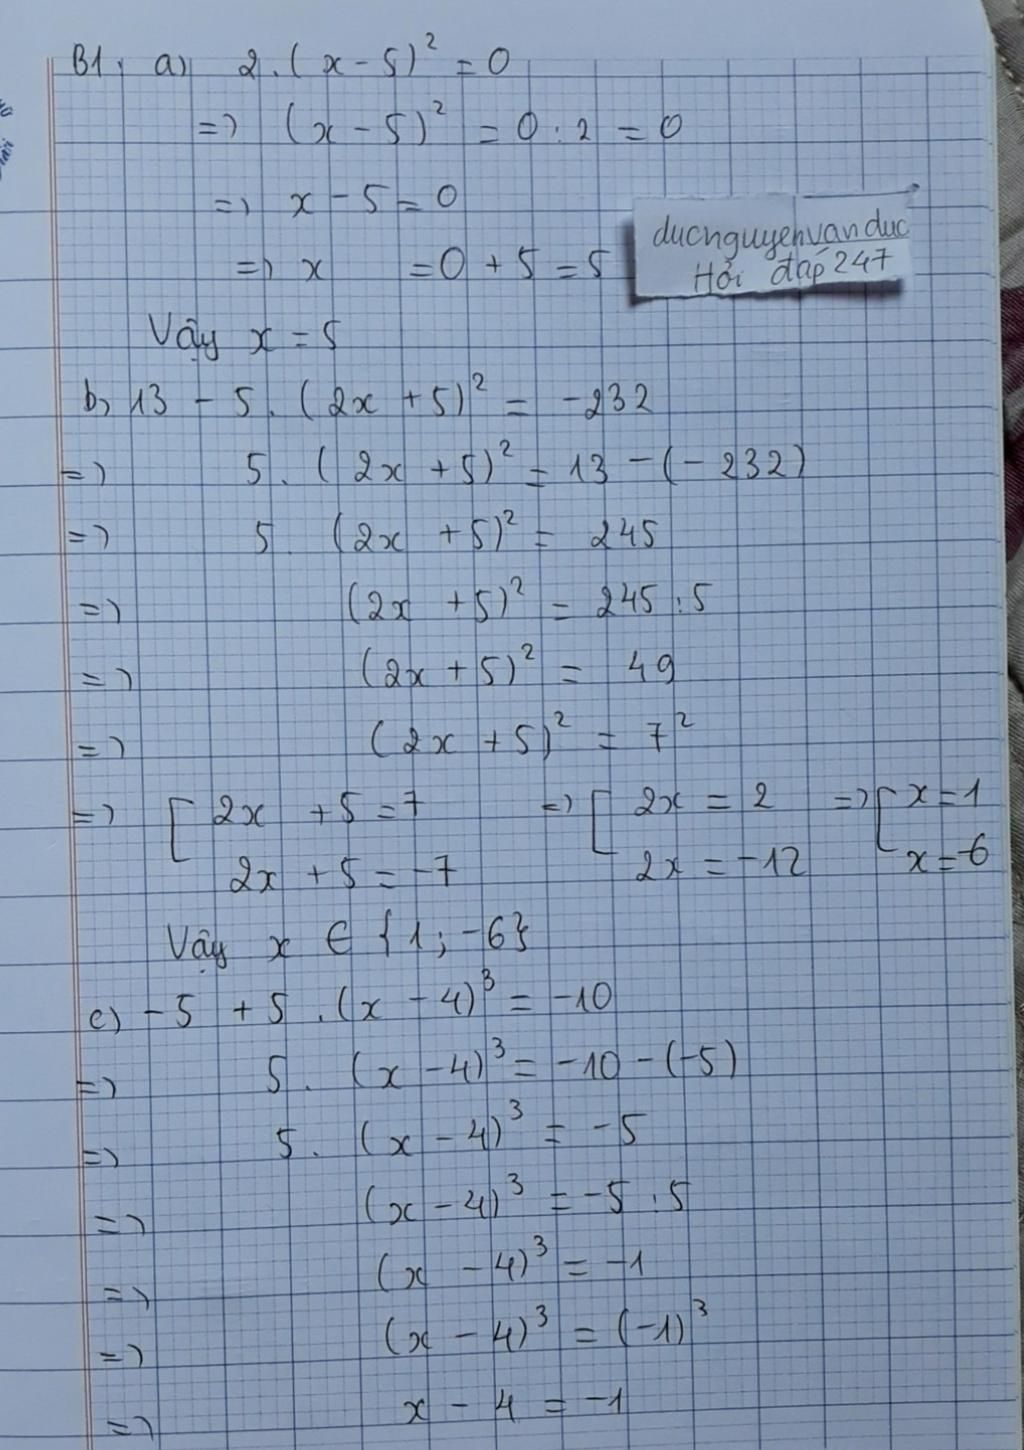 B1, a) 2.(x-5)² = 0
=> (x-5)² = 0:2 = 0
=> x-5 = 0
=> x = 0 + 5 = 5
ducnguyenvanduc
Hỏi đáp 247
Vậy x = 5
b) 13 - 5.(2x+5)² = -232
=> 5.(2x+5)² = 13-(-232)
=> 5.(2x+5)² = 245
=> (2x+5)² = 245:5
=> (2x+5)² = 49
=> (2x+5)² = 7²
=> [ 2x +5 = 7 => [ 2x = 2 => [ x = 1
2x +5 = -7 2x = -12 x = -6
Vậy x ∈ {1; -6}
c) -5 +5.(x-4)³ = -10
=> 5.(x-4)³ = -10-(-5)
=> 5.(x-4)³ = -5
=> (x-4)³ = -5:5
=> (x-4)³ = -1
=> (x-4)³ = (-1)³
=> x-4 = -1